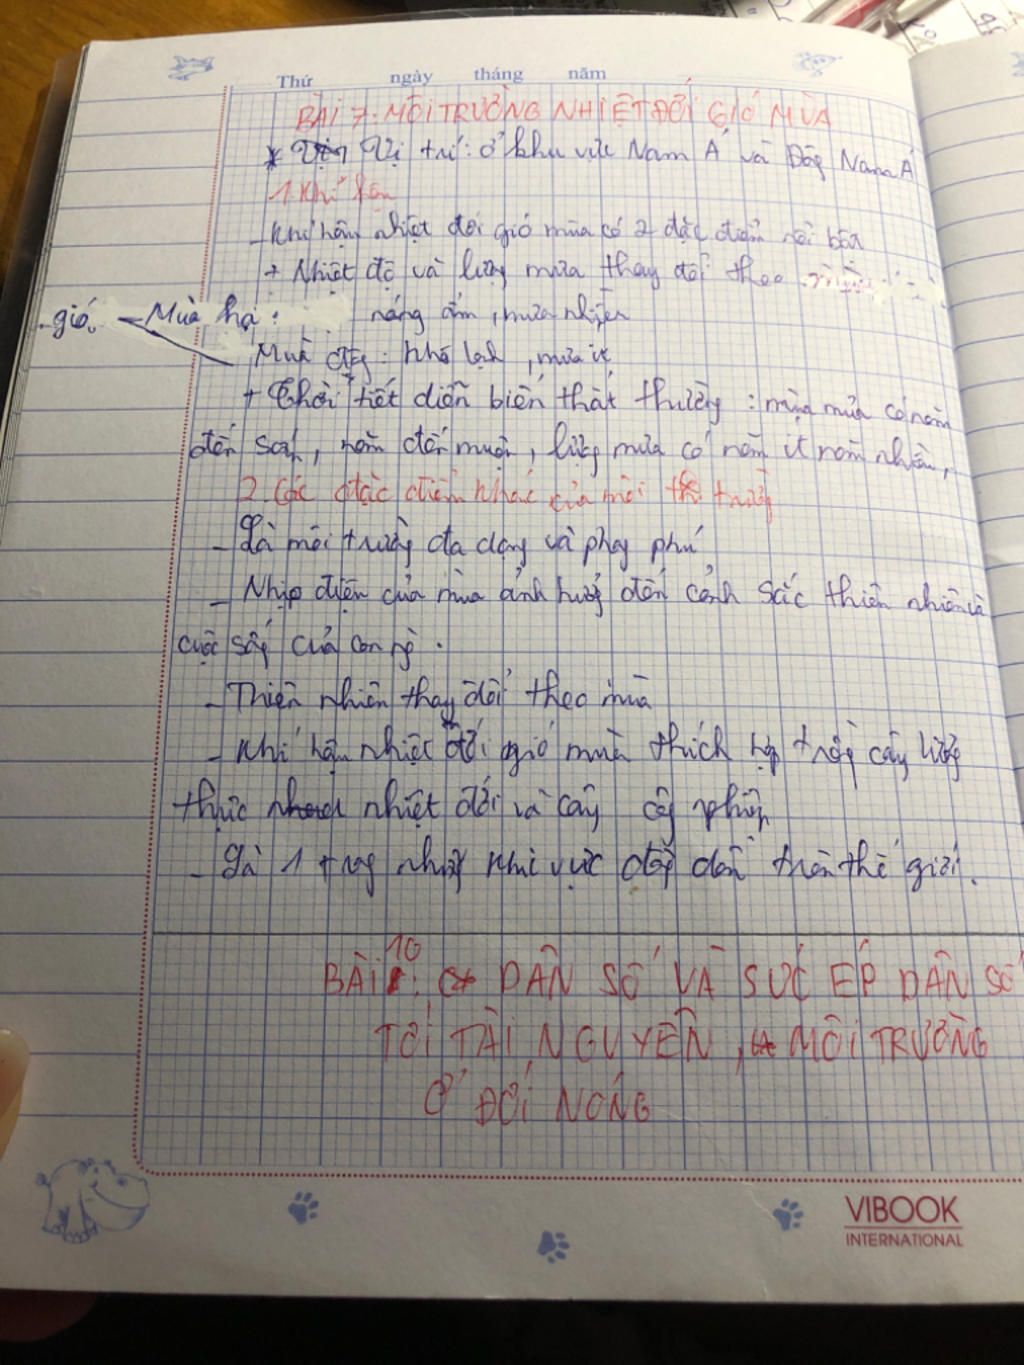 Thứ ngày tháng năm
BÀI 7: MÔI TRƯỜNG NHIỆT ĐỚI GIÓ MÙA
* Vị trí: ở khu vực Nam Á và Đôg Nam Á
1. Khí hậu
- Khí hậu nhiệt đới gió mùa có 2 đặc điểm nổi bật
+ Nhiệt độ và lượg mưa thay đổi theo mùa
gió. - Mùa hạ: nóng ẩm, mưa nhiều
Mùa đôg: khô lạnh, mưa ít
+ Thời tiết diễn biến thất thườg: mùa mưa có năm
đến sớm, năm đến muộn, lượg mưa có năm ít năm nhiều,
2. Các đặc điểm khác của môi trườg
- Là môi trườg đa dạg và phog phú
- Nhịp điệu của mùa ảnh hưởg đến cảnh sắc thiên nhiên và
cuộc sốg của con ng`.
- Thiên nhiên thay đổi theo mùa
- Khí hậu nhiệt đới gió mùa thích hợp trồg cây lươg
thực nhiệt đới và cây côg nghiệp
- Là 1 trog nhữg khu vực đôg dân trên thế giới.
BÀI 10: DÂN SỐ VÀ SỨC ÉP DÂN SỐ
TỚI TÀI NGUYÊN, MÔI TRƯỜNG
Ở ĐỚI NÓNG
VIBOOK
INTERNATIONAL